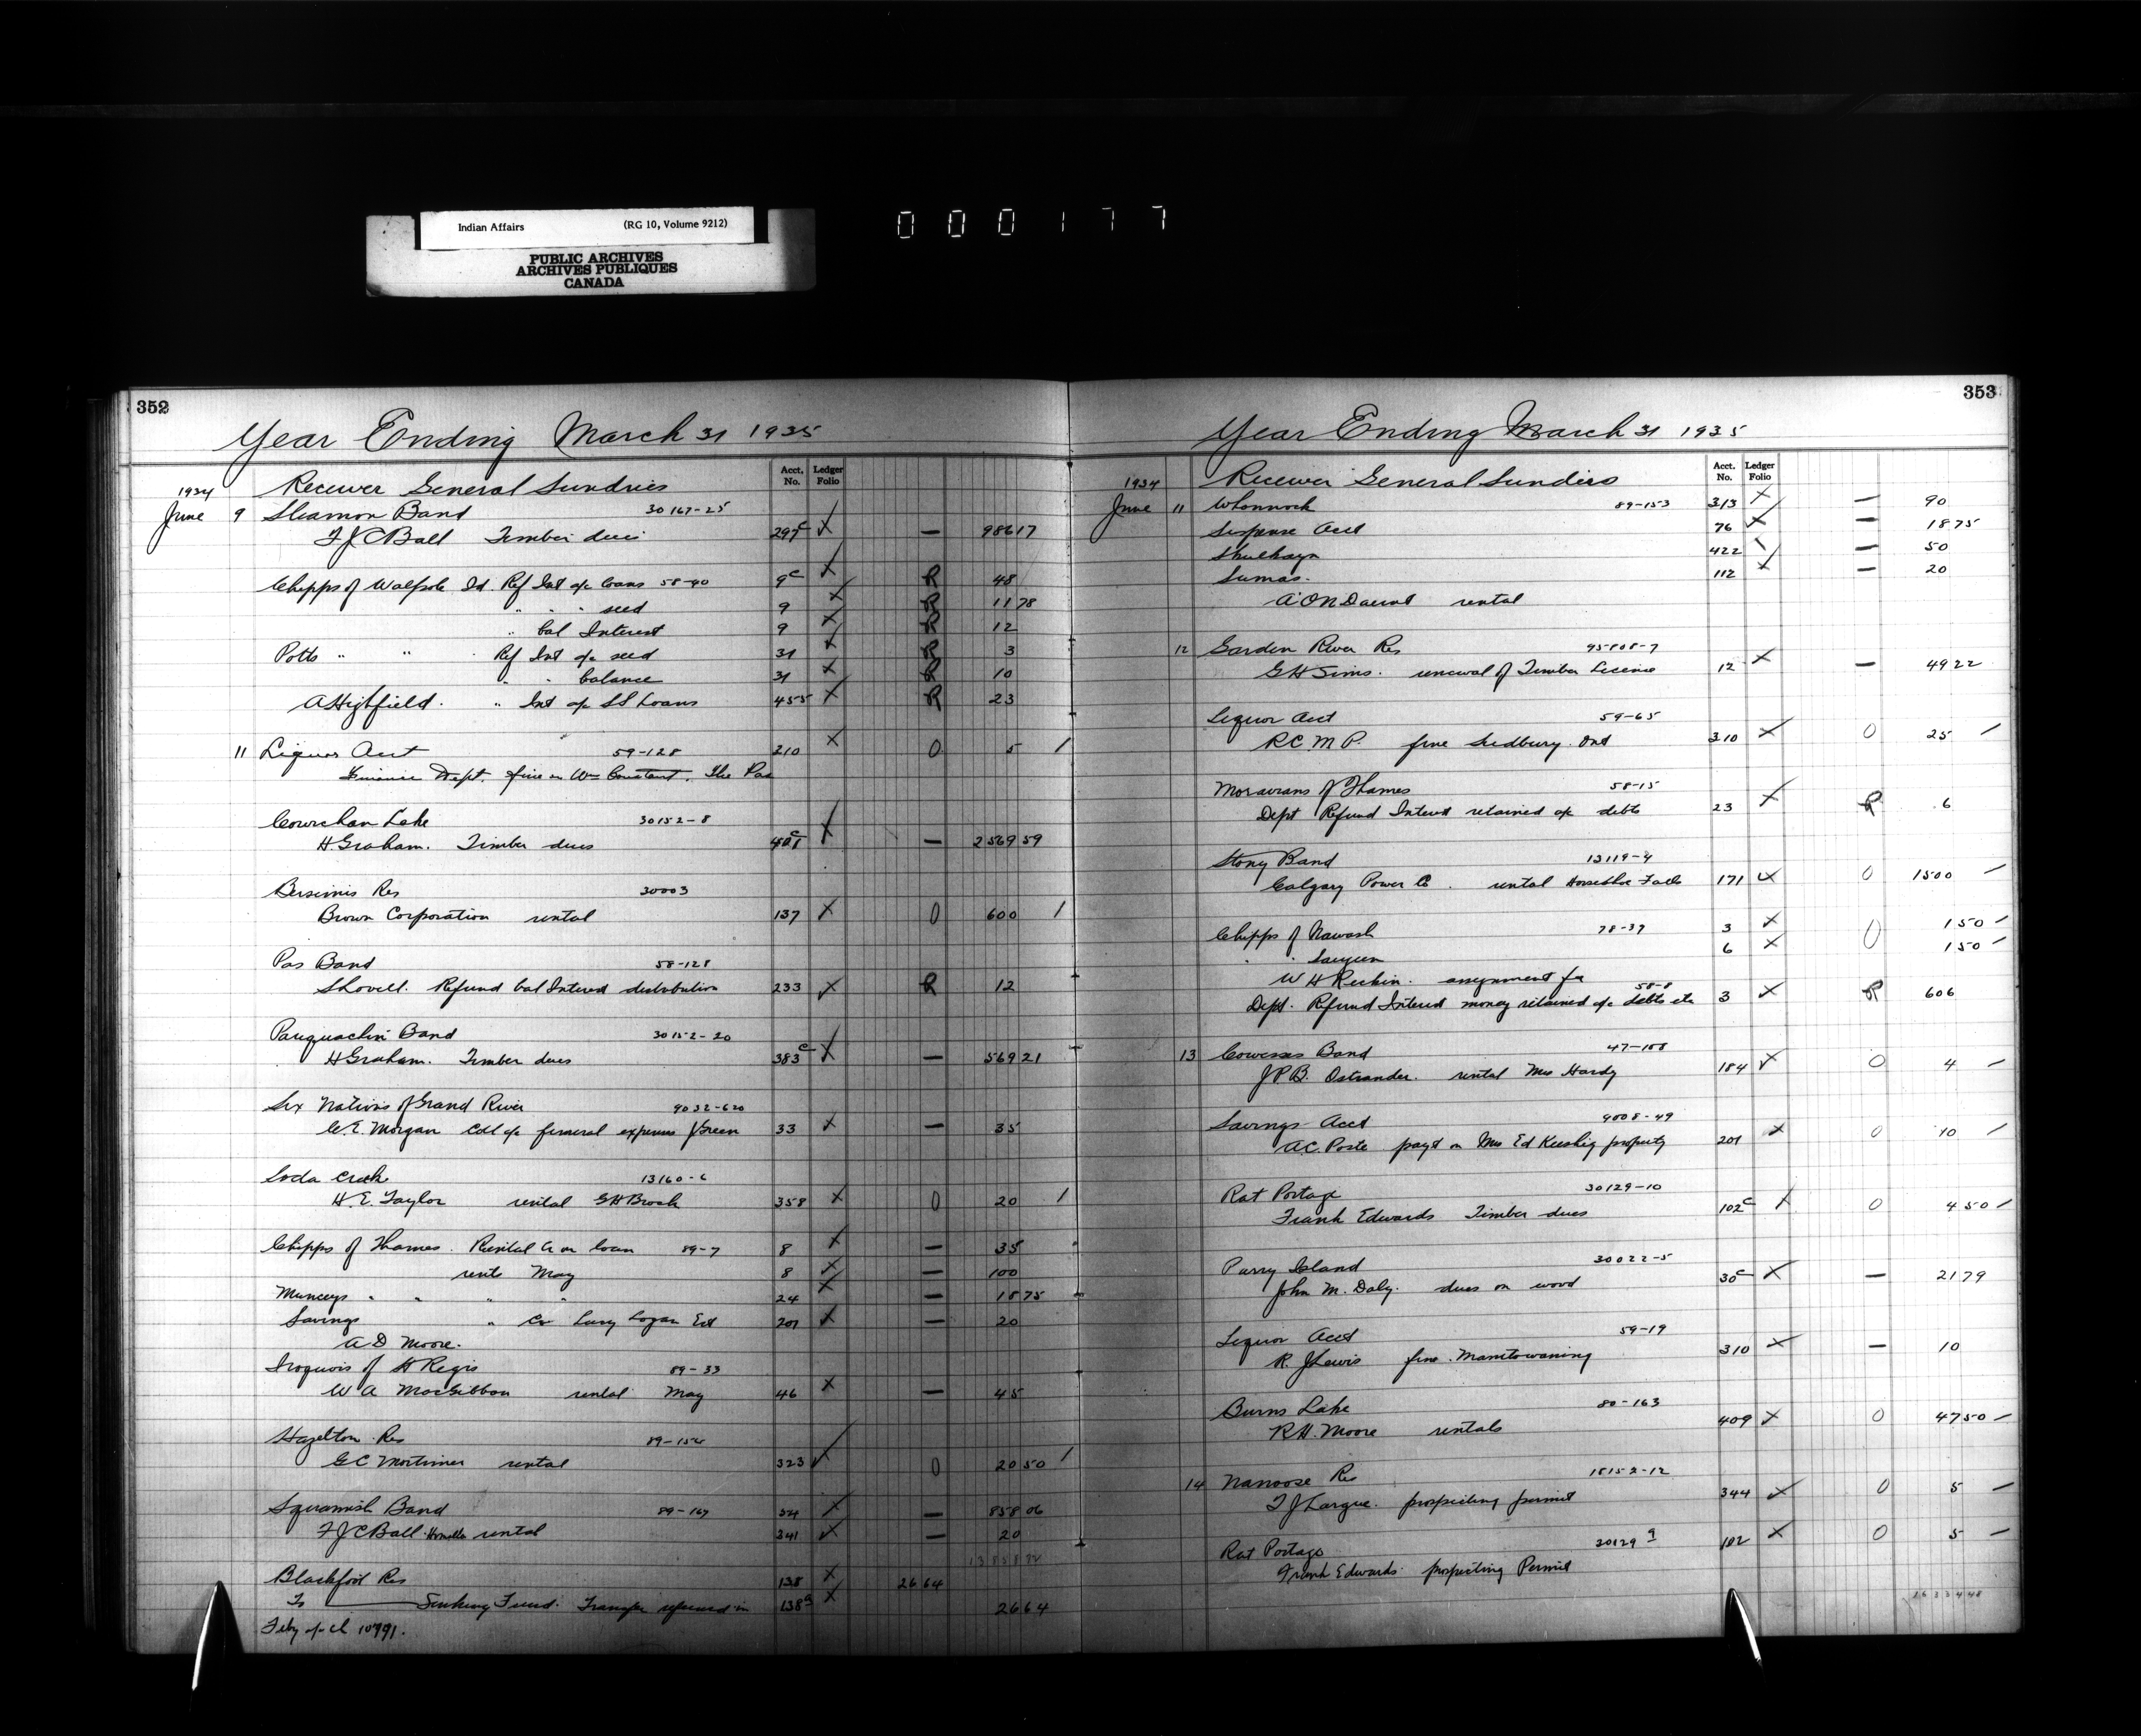 Indian Affairs (RG 10, Volume 9212)
PUBLIC ARCHIVES
ARCHIVES PUBLIQUES
CANADA
000177
352
Year Ending March 31 1935
Acct. No. Ledger Folio
1934 Receiver General Sundries
June 9 Sliamon Band 30167-25
F J C Ball Timber dues 297c — 986 17
Chipps of Walpole Id. Ref Int a/c loans 58-40 9c R 48
" " " seed 9 R 11 78
" bal Interest 9 R 12
Potts " " Ref Int a/c seed 31 R 3
" " balance 31 R 10
A Highfield. " Int a/c SS Loans 455 R 23
11 Liquor Acct 59-128 210 0 5 /
Finance Dept. fine on Wm Constant, The Pas
Cowichan Lake 30152-8
H. Graham. Timber dues c — 2569 59
Bersimis Res 30003
Brown Corporation rental 137 0 600 /
Pas Band 58-128
S Lovell. Refund bal Interest distribution 233 R 12
Pauquachin Band 30152-20
H Graham. Timber dues 383c — 569 21
Six Nations of Grand River 9032-620
C. E. Morgan Coll a/c funeral expenses J Green 33 — 35
Soda Creek 13160-6
H. E. Taylor rental G H Brock 358 0 20 /
Chipps of Thames. Rental Cr on loan 89-7 8 — 35
rents May 8 — 100
Munceys " " " " 24 — 18 75
Savings " Cr Lucy Logan Est 201 — 20
A D Moore.
Iroquois of St Regis 89-33
W A MacGibbon rental May 46 — 45
Hazelton Res 89-154
G C Mortimer rental 323 0 20 50 /
Squamish Band 89-167 34 — 858 06
F J C Ball rental 341 — 20
Blackfoot Res 138 26 64
To Sinking Fund. Transfer refund in 138a 26 64
Feby a/c Cl 10991.
353
Year Ending March 31 1935
Acct. No. Ledger Folio
1934 Receiver General Sundries
June 11 Whonnock 89-153 313 — 90
Suspense Acct 76 — 18 75
Skulkayn 422 — 50
Sumas. 112 — 20
A O'N Daunt rental
12 Garden River Res 7
G H Sims. renewal of Timber License 12 — 49 22
Liquor Acct 59-65
R.C.M.P. fine Sudbury. Ont 310 0 25 /
Moravians of Thames 58-15
Dept Refund Interest retained a/c debts 23 R 6
Stony Band 13119-4
Calgary Power Co. rental Horseshoe Falls 171 0 1500 /
Chipps of Nawash 78-37 3 0 1 50 /
" " Saugeen 6 1 50 /
W H assignment fee
58-8
Dept. Refund Interest money retained a/c debts etc 3 R 606
13 Cowesses Band 47-108
J P B. Ostrander. rental Mrs Hardy 184 0 4 /
Savings Acct 4008-49
A.C. Poste payt on Mrs Ed Keeshig property 201 0 10 /
Rat Portage 30129-10
Frank Edwards Timber dues 102c 0 4 50 /
Parry Island 30022-5
John M. Daly. dues on wood 30c — 21 79
Liquor Acct 59-19
R. J Lewis fine. Manitowaning 310 — 10
Burns Lake 80-163
R.H. Moore rentals 409 0 47 50 /
14 Nanoose Res 18152-12
T J Largue. prospecting permit 344 0 5 /
Rat Portage 30129 9 102 0 5 /
Frank Edwards prospecting Permit